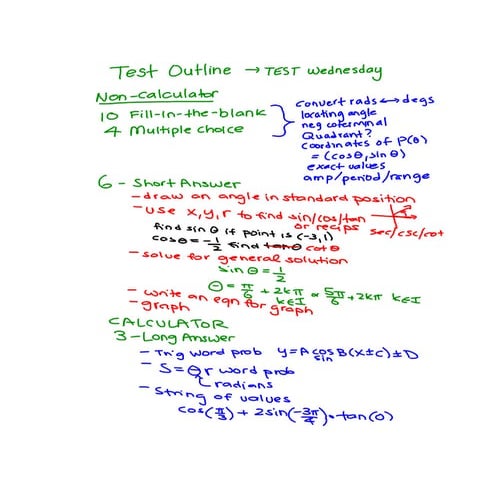 Test Outline → TEST Wednesday
Non-calculator
10 Fill-In-the-blank
4 Multiple choice
convert rads ↔ degs
locating angle
neg coterminal
Quadrant?
coordinates of P(θ)
= (cosθ, sinθ)
exact values
amp/period/range
6 - Short Answer
- draw an angle in standard position
- use x, y, r to find sin/cos/tan
or recips
sec/csc/cot
find sin θ if point is (-3,1)
cosθ = -1/2 find tanθ cotθ
- solve for general solution
sin θ = 1/2
θ = π/6 + 2kπ or 5π/6 + 2kπ k∈I
k∈I
- write an eqn for graph
- graph
CALCULATOR
3 - Long Answer
- Trig word prob y = A cos B(x ± c) ± D
sin
- S = θr word prob
radians
- String of values
cos(π/3) + 2sin(-3π/4) • tan(0)